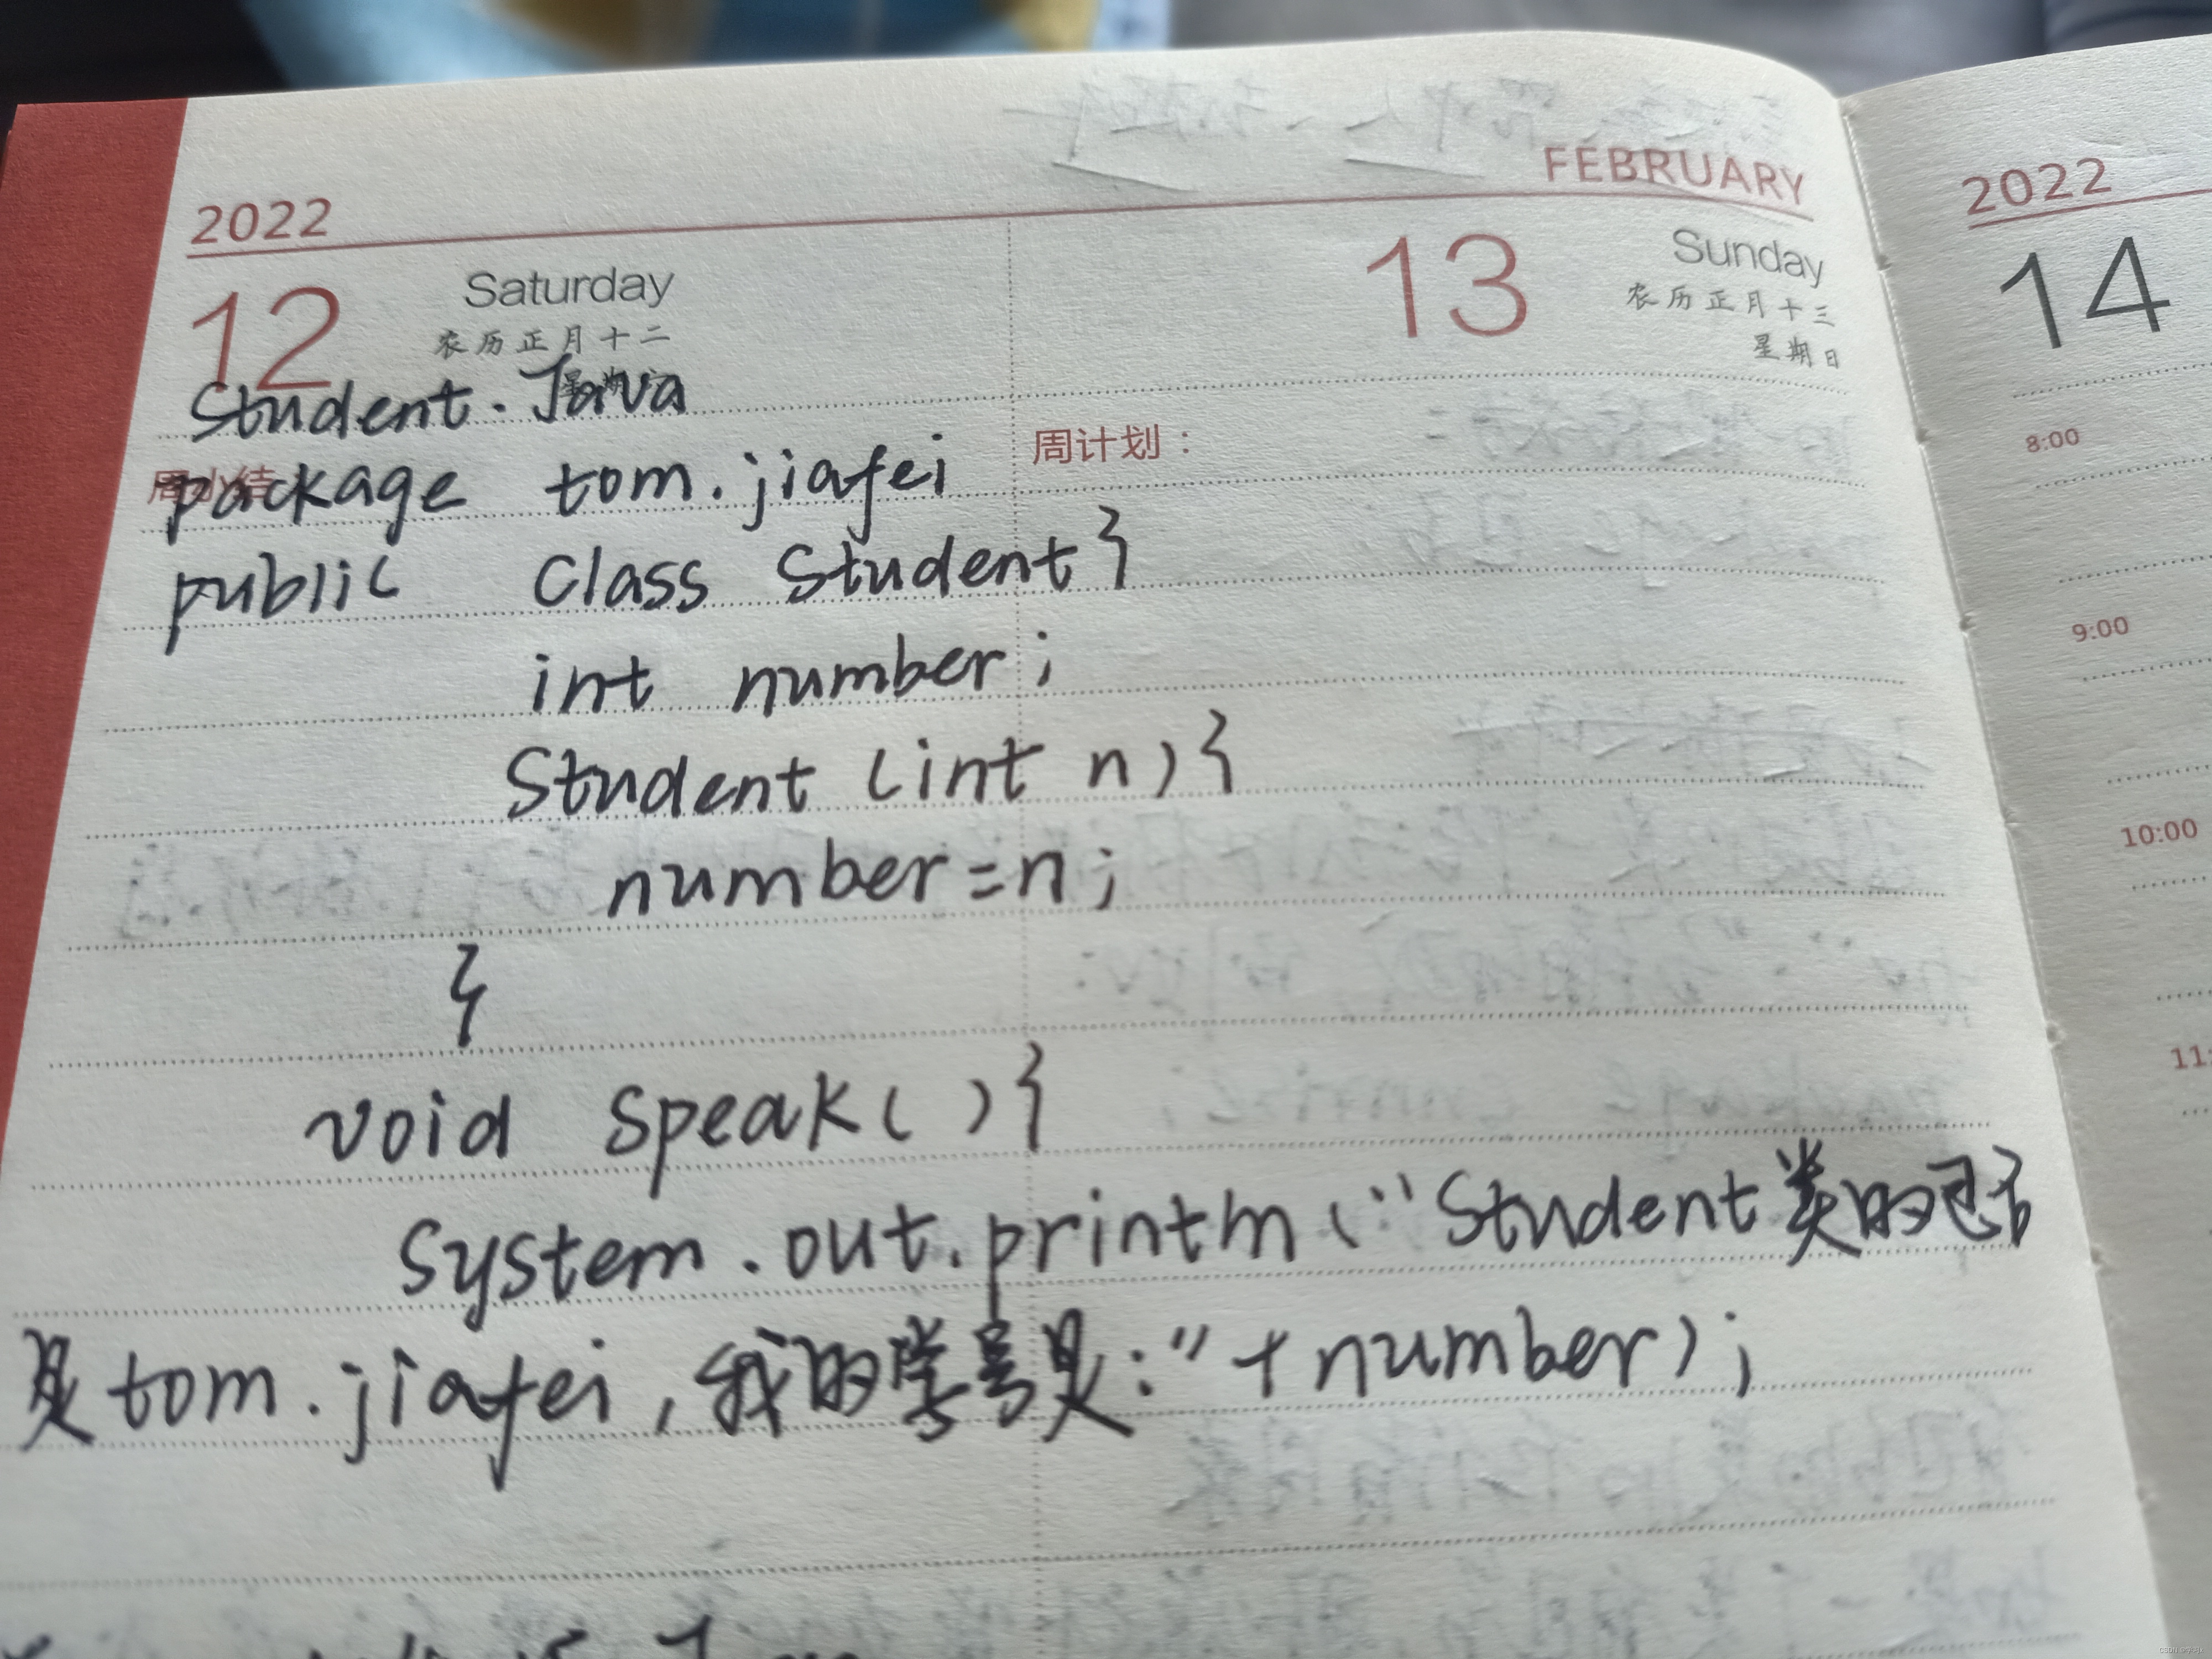 2022
FEBRUARY
2022
12
Saturday
农历正月十二
13
Sunday
农历正月十三
星期日
14
Student.Java
周小结
周计划：
8:00
package tom.jiafei
public Class Student{
9:00
int number;
Student (int n){
10:00
number=n;
}
11:
void speak( ){
System.out.println("Student类的包名
是tom.jiafei,我的学号是:"+number);